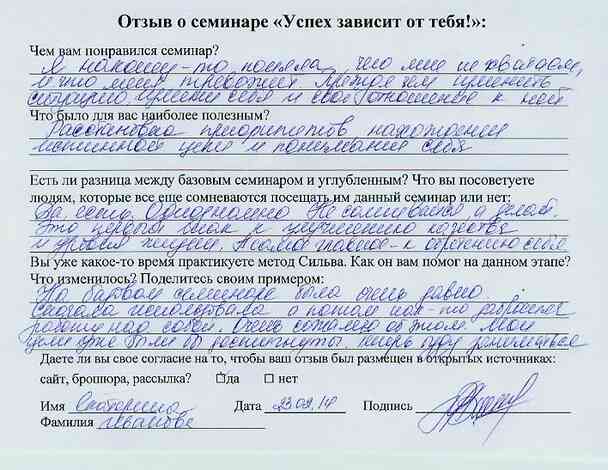 Отзыв о семинаре «Успех зависит от тебя!»:
Чем вам понравился семинар?
Я наконец-то поняла, чего мне не хватает,
и что меня тревожит. Прежде чем изменить
ситуацию, измени себя и своё отношение к ней
Что было для вас наиболее полезным?
Расстановка приоритетов, нахождение
истинной цели и понимания себя
Есть ли разница между базовым семинаром и углубленным? Что вы посоветуете
людям, которые все еще сомневаются посещать им данный семинар или нет:
Да есть. Однозначно не сомневайся, а делай.
Это первый шаг к улучшению качества
и уровня жизни. А самое главное - к себя.
Вы уже какое-то время практикуете метод Сильва. Как он вам помог на данном этапе?
Что изменилось? Поделитесь своим примером:
На базовом семинаре была очень давно
Сначала использовала а потом как-то забросила
работу над собой. Очень сожалею об этом. Мои
цели уже были бы достигнуты. Теперь буду заниматься
Даете ли вы свое согласие на то, чтобы ваш отзыв был размещен в открытых источниках:
сайт, брошюра, рассылка? да ☐ нет
Имя Дата 23.02.14 Подпись
Фамилия